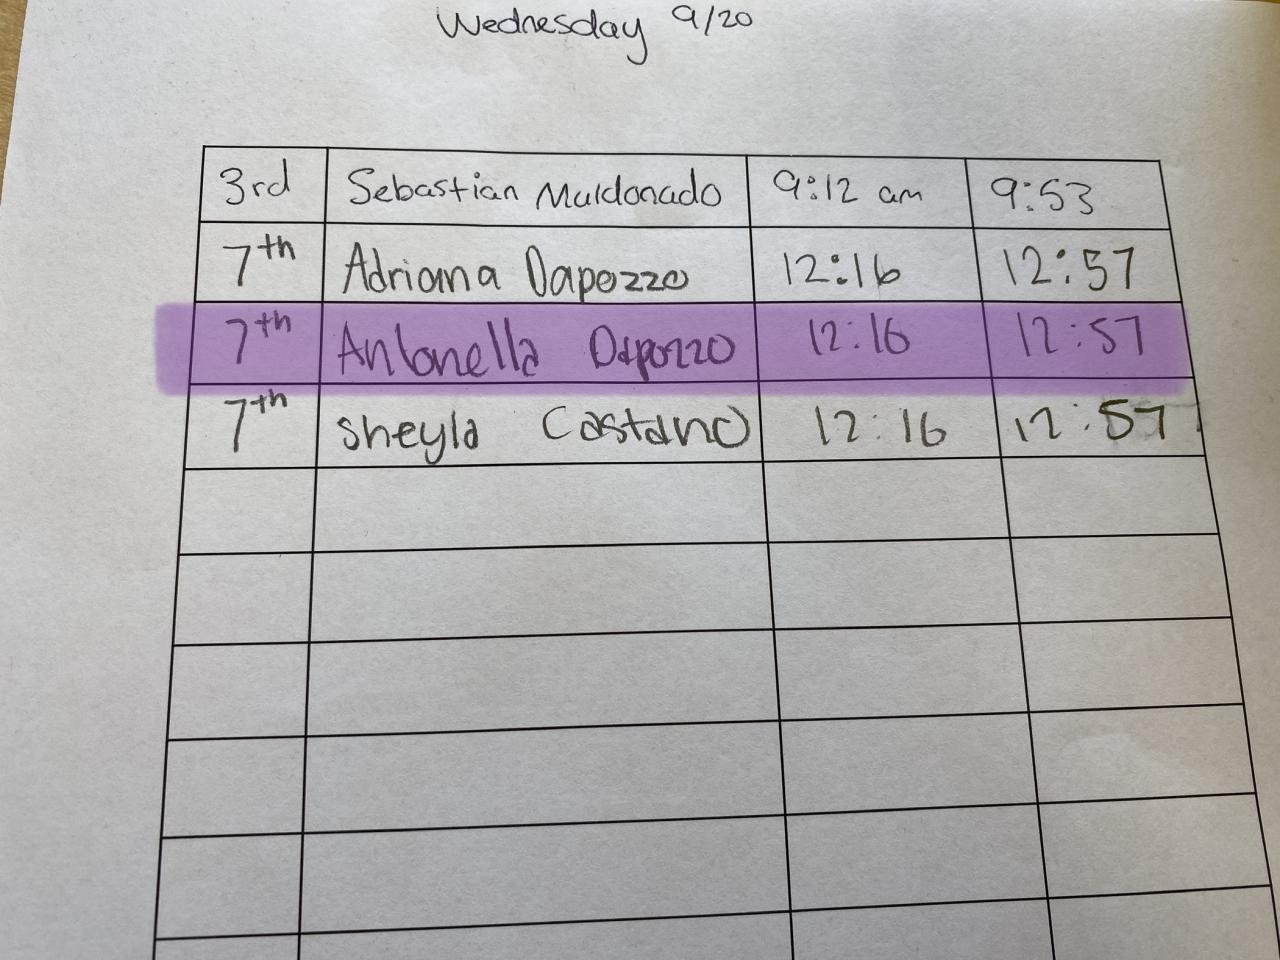 Wednesday 9/20
3rd Sebastian Maldonado 9:12 am 9:53
7th Adriana Dapozzo 12:16 12:57
7th Antonella Dapozzo 12:16 12:57
7th sheyla Castano 12:16 12:57